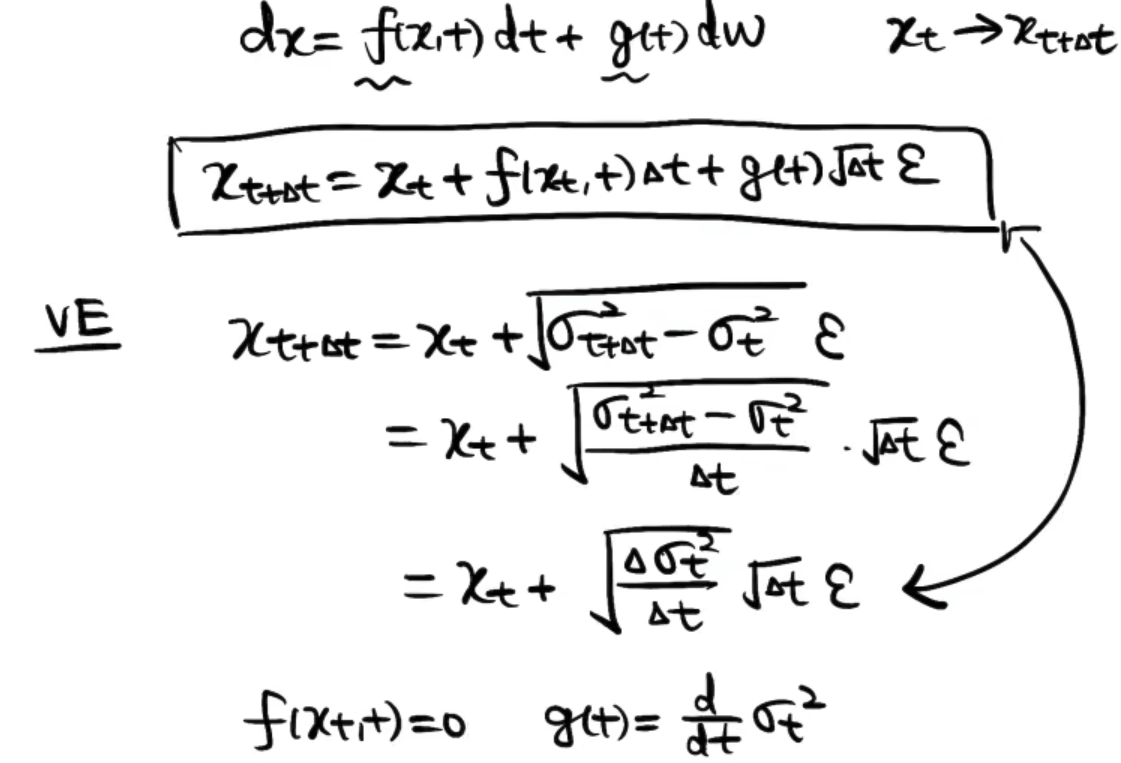 dx = f(x,t) dt + g(t) dw    x_t → x_{t+Δt}
x_{t+Δt} = x_t + f(x_t, t) Δt + g(t) √Δt ε
VE    x_{t+Δt} = x_t + √(σ_{t+Δt}^2 − σ_t^2) ε
= x_t + √((σ_{t+Δt}^2 − σ_t^2)/Δt) · √Δt ε
= x_t + √(Δσ_t^2/Δt) √Δt ε
f(x_t, t) = 0    g(t) = d/dt σ_t^2